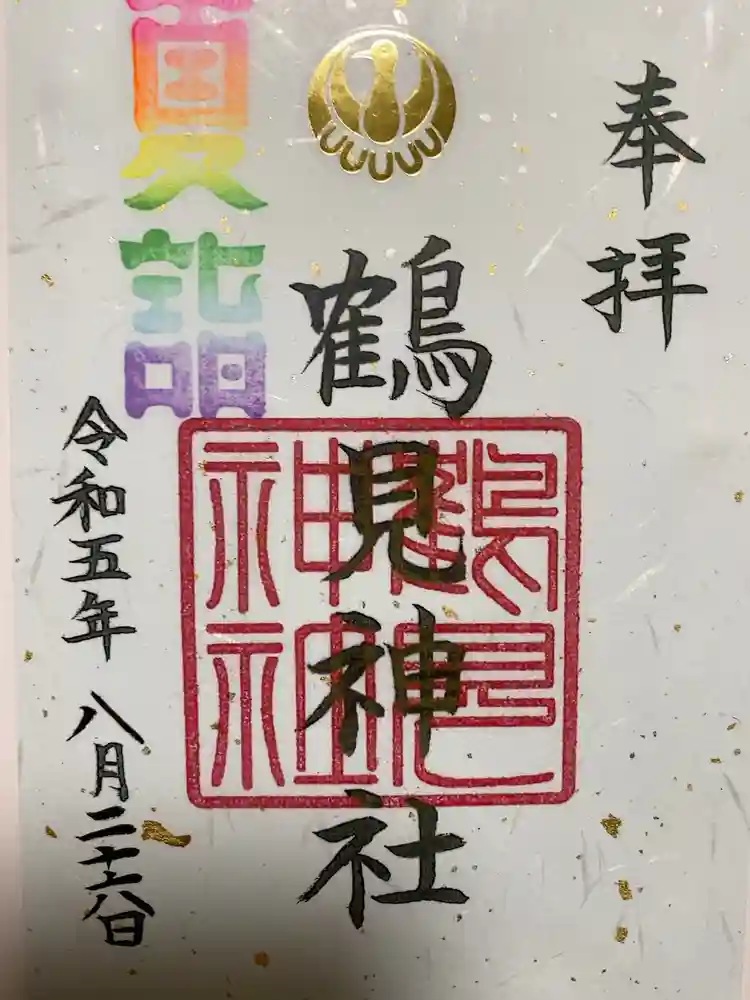 奉拝
鶴見神社
鶴見神社
夏詣
令和五年 八月二十六日